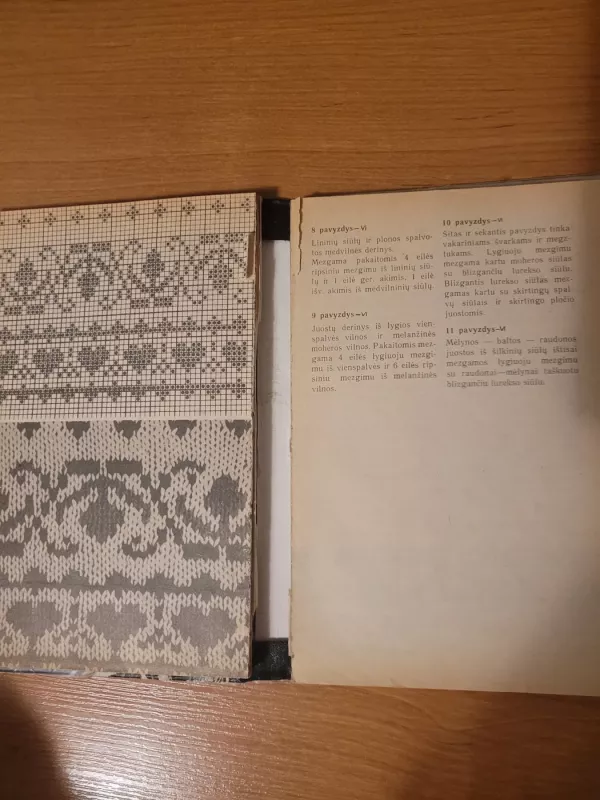 8 pavyzdys—VI
Lininių siūlų ir plonos spalvo-
tos medvilnės derinys.
Mezgama pakaitomis 4 eilės
ripsiniu mezgimu iš lininių siū-
lų ir 1 eilė ger. akimis, 1 eilė
išv. akimis iš medvilninių siūlų.
9 pavyzdys—VI
Juostų derinys iš lygios vien-
spalvės vilnos ir melanžinės
moheros vilnos. Pakaitomis mez-
gama 4 eilės lygiuoju mezgi-
mu iš vienspalvės ir 6 eilės rip-
siniu mezgimu iš melanžinės
vilnos.
10 pavyzdys—VI
Šitas ir sekantis pavyzdys tinka
vakariniams švarkams ir megz-
tukams. Lygiuoju mezgimu
mezgama kartu moheros siūlas
su blizgančiu lurekso siūlu.
Blizgantis lurekso siūlas mez-
gamas kartu su skirtingų spal-
vų siūlais ir skirtingo pločio
juostomis.
11 pavyzdys—VI
Mėlynos — baltos — raudonos
juostos iš šilkinių siūlų ištisai
mezgamos lygiuoju mezgimu
su raudonai—mėlynai taškuotu
blizgančiu lurekso siūlu.